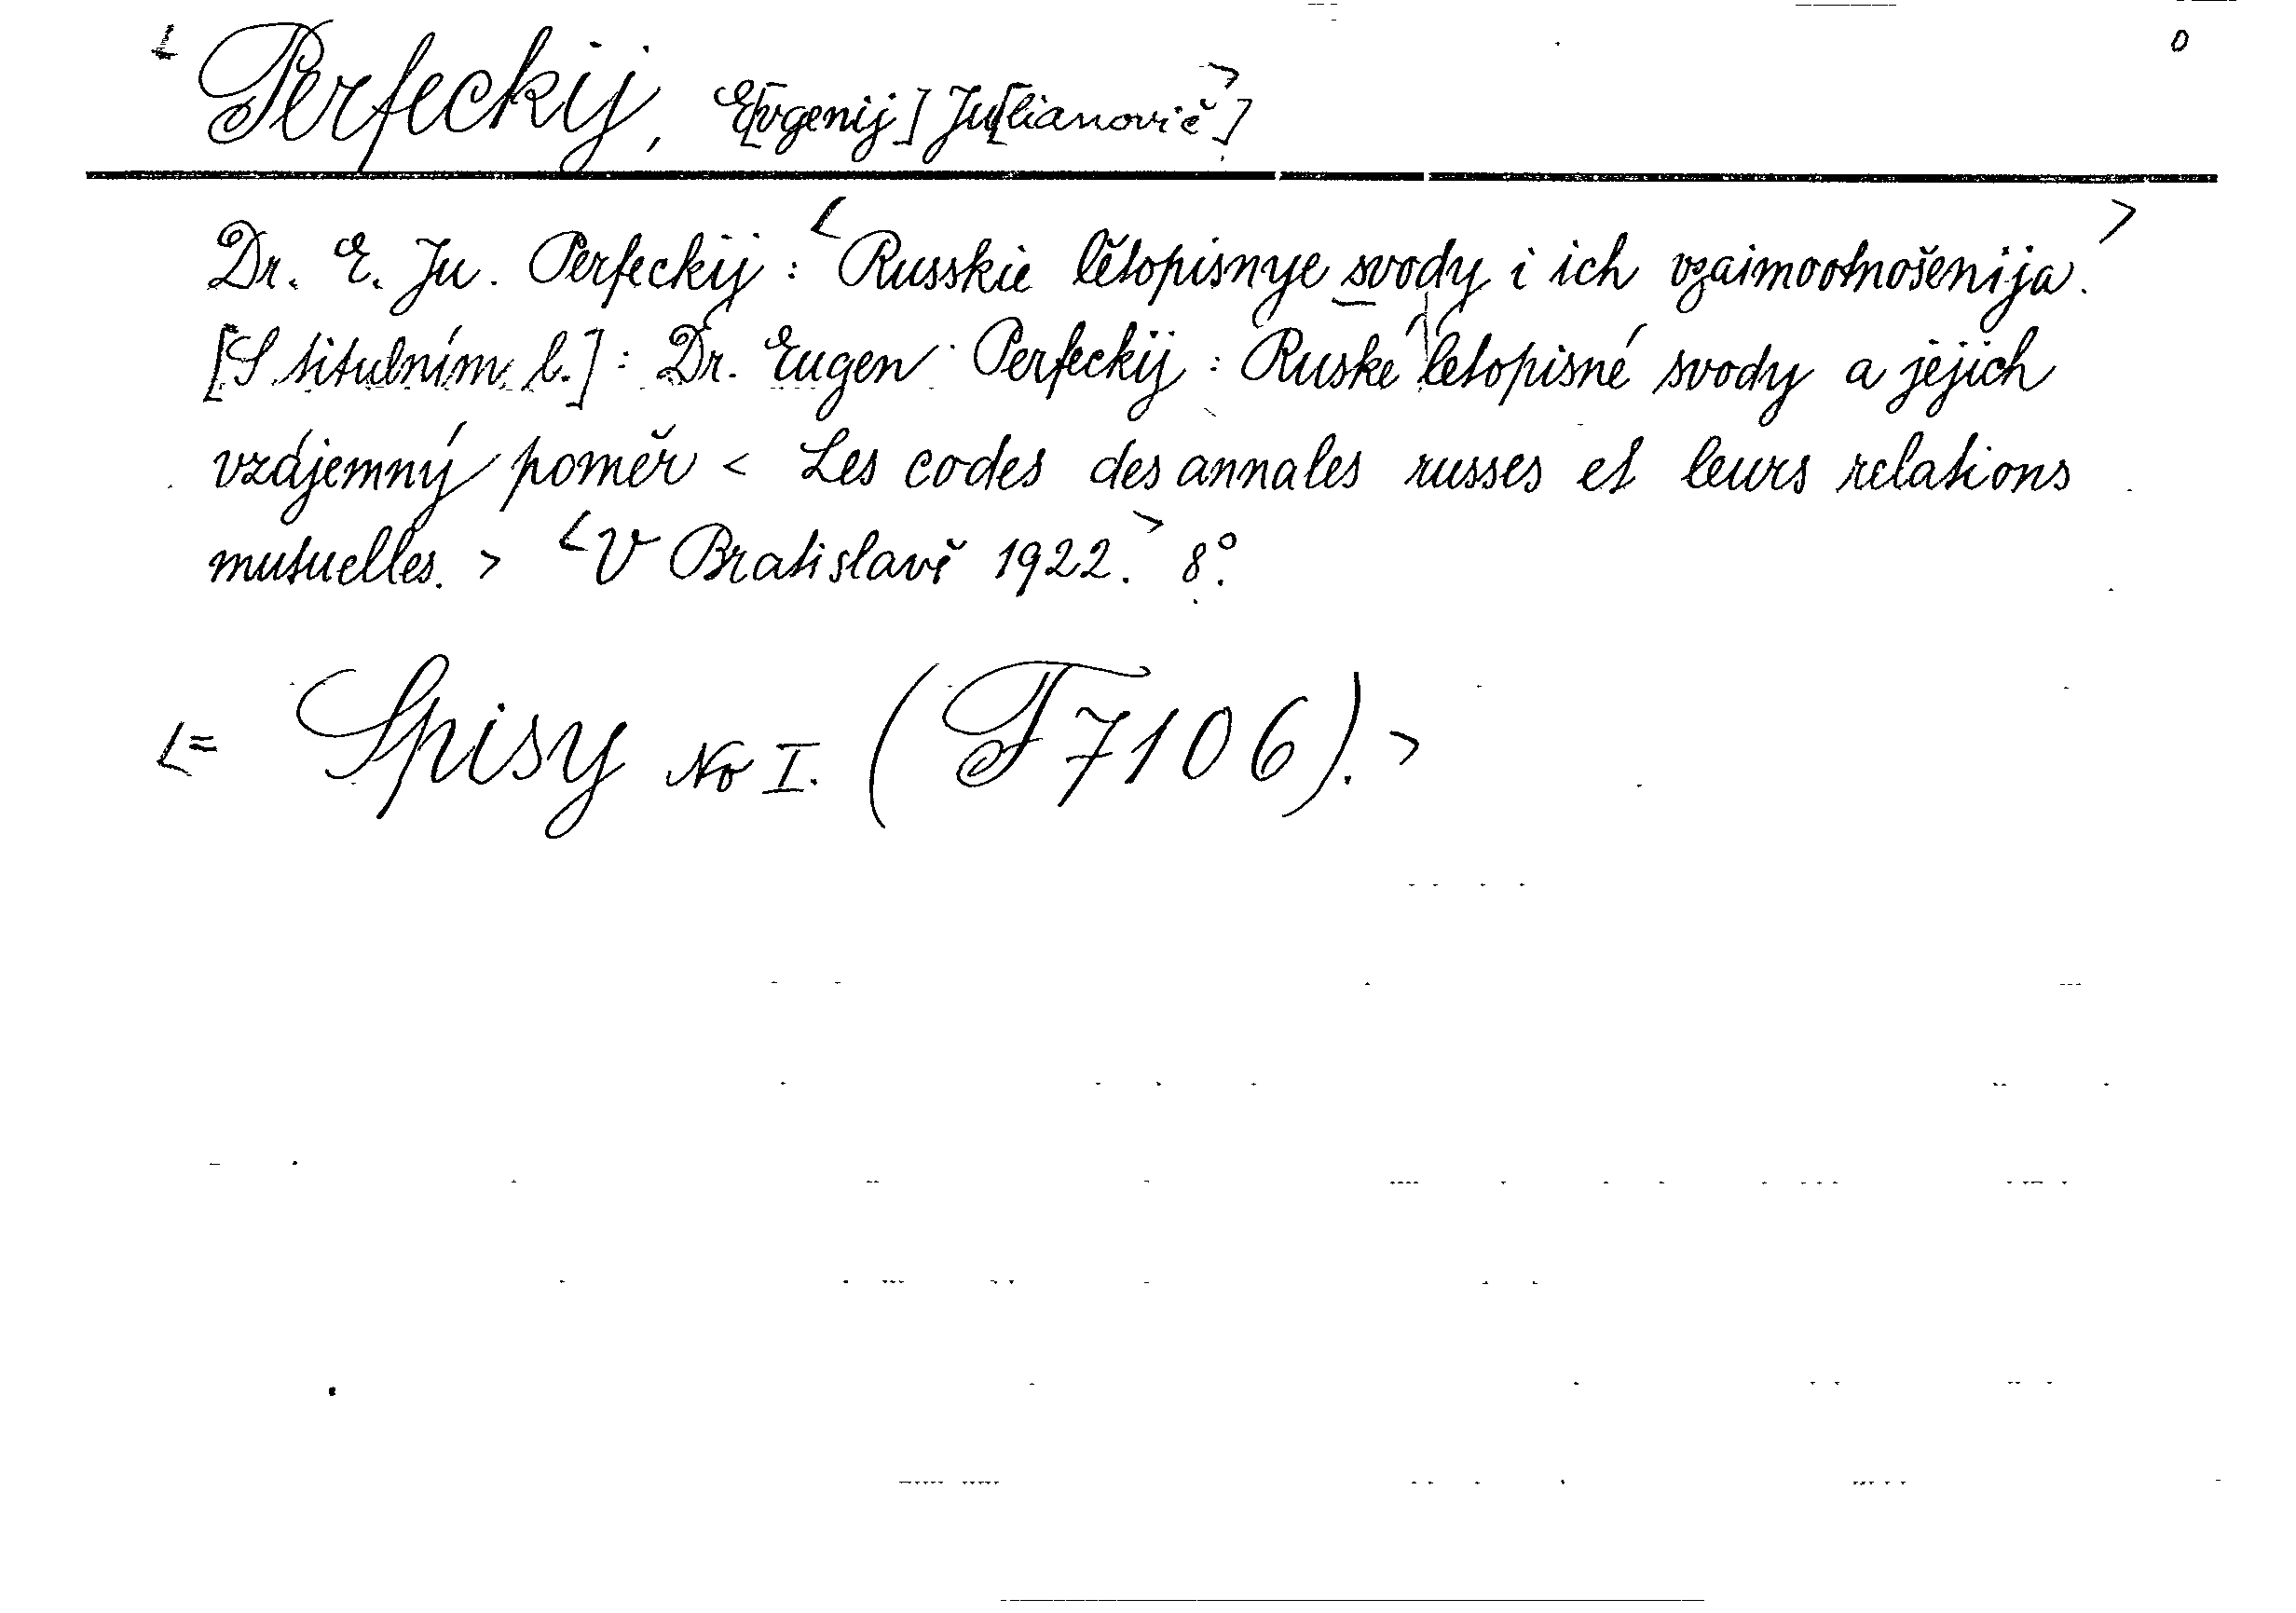 < Perfeckij, E[vgenij] Ju[lianovič]. > 0
Dr. E. Ju. Perfeckij : < Russkie lětopisnye svody i ich vzaimootnošenija. >
[S titulním l.] : Dr. Eugen Perfeckij : Ruské letopisné svody a jejich
vzájemný poměr < Les codes des annales russes et leurs relations
mutuelles. > < V Bratislavě 1922. > 8°.
<= Spisy No I. (F 7106). >